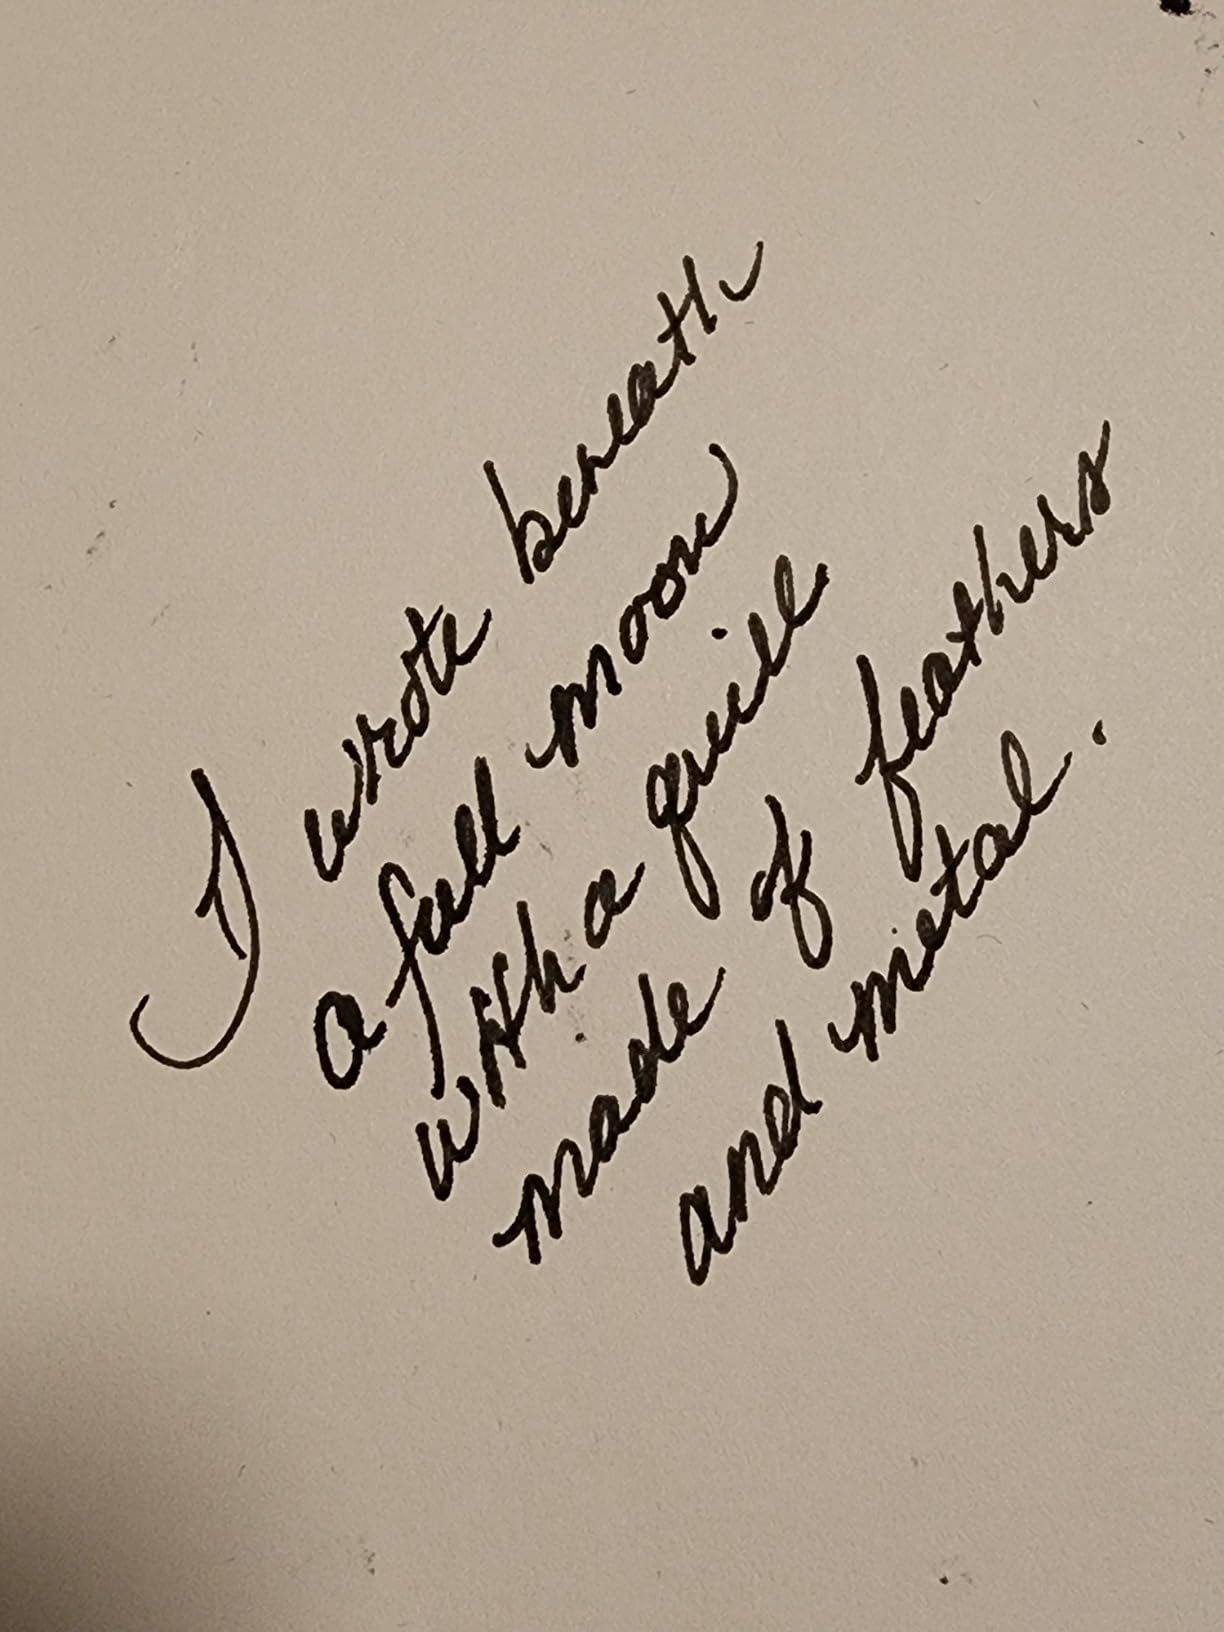 I wrote beneath
a full moon
with a quill
made of feathers
and metal.